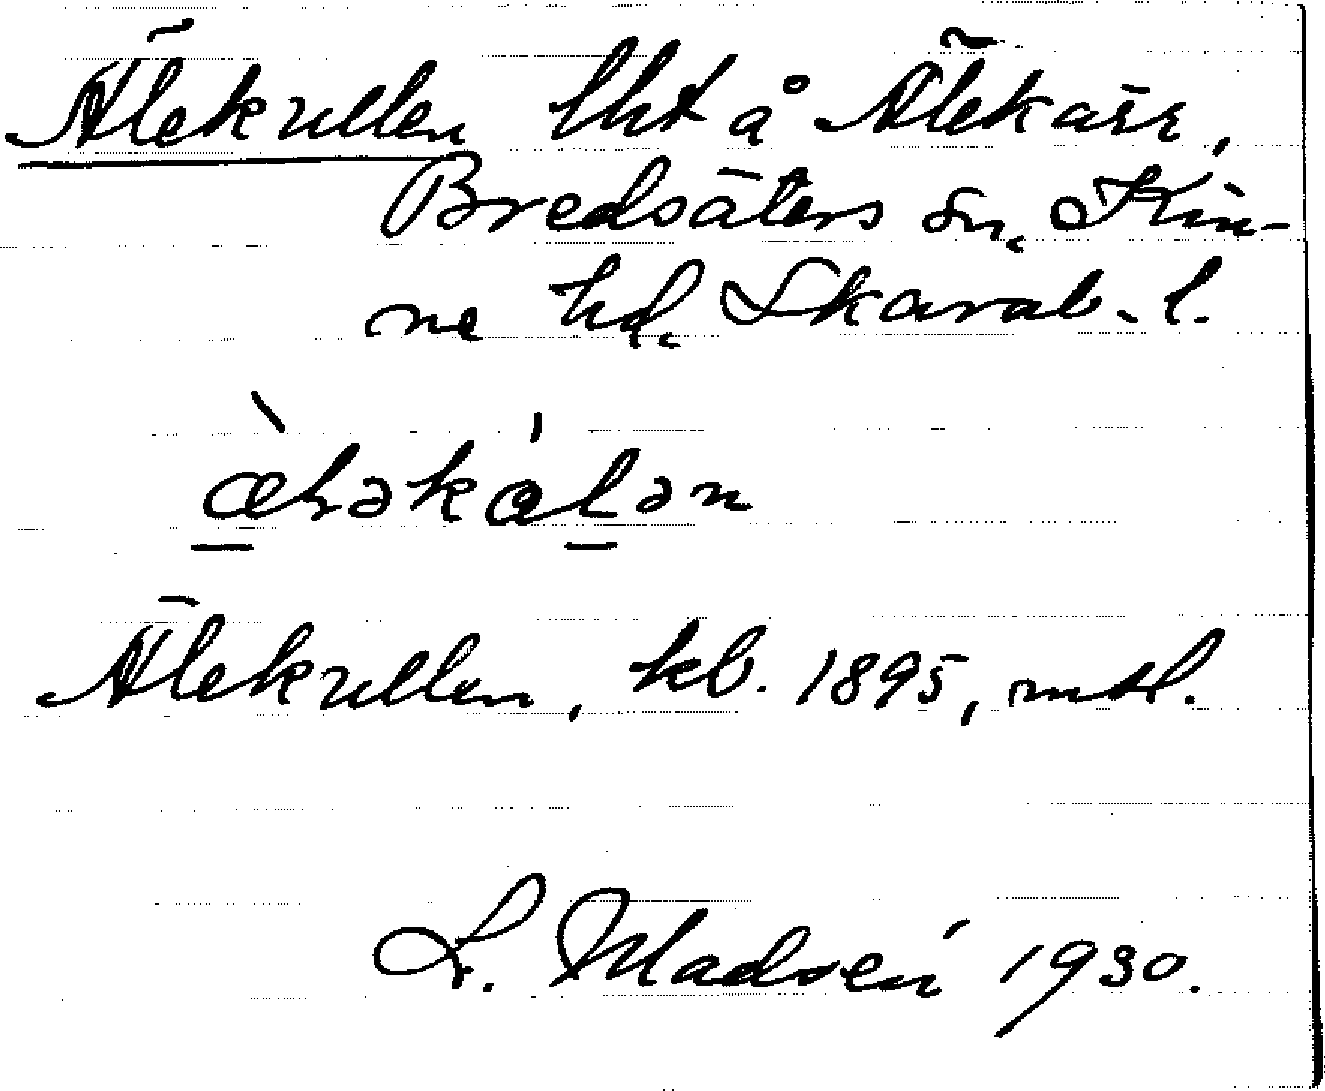 Älekullen lht å Älekärr,
Bredsäters sn, Kin-
ne hd, Skarab. l.
Älekullen, kb. 1895, mtl.
L. Madsén 1930.